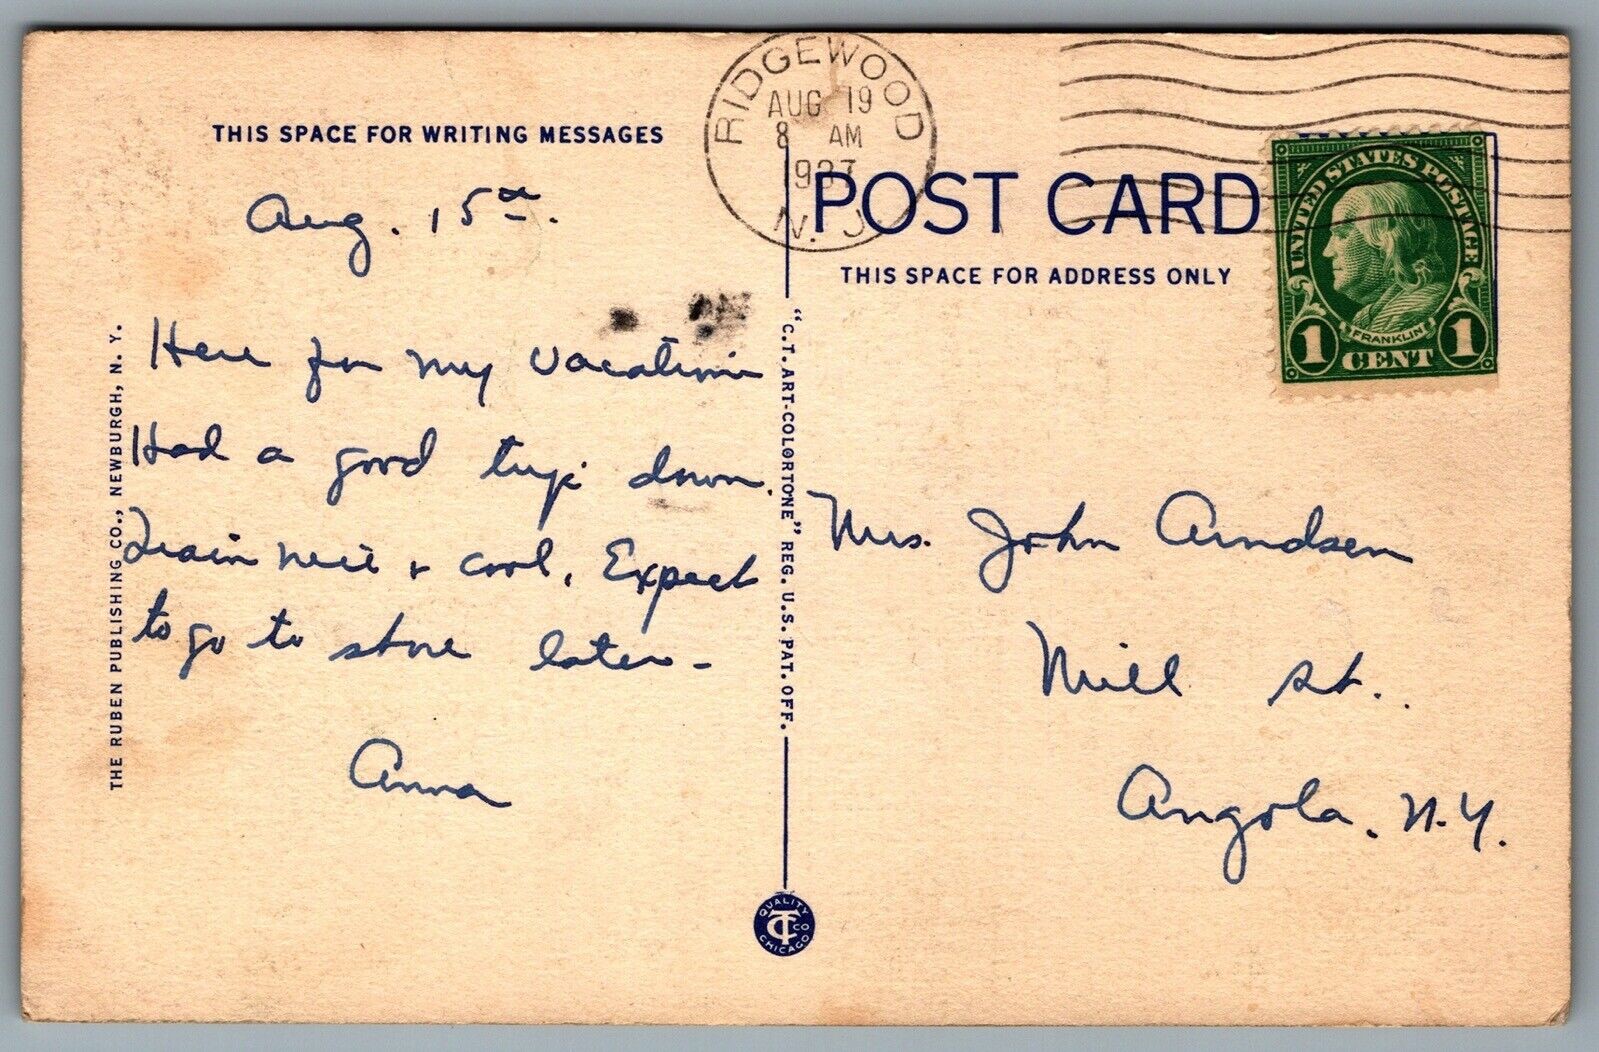 THIS SPACE FOR WRITING MESSAGES
Aug. 15th.
Here for my vacation
Had a good trip down.
Train nice & cool. Expect
to go to shore later -
Anna
THE RUBEN PUBLISHING CO., NEWBURGH, N. Y.
"C.T. ART-COLORTONE" REG. U.S. PAT. OFF.
QUALITY
CT CO
CHICAGO
RIDGEWOOD
AUG 19
8 AM
1937
N. J.
POST CARD
THIS SPACE FOR ADDRESS ONLY
UNITED STATES POSTAGE
FRANKLIN
1 CENT 1
Mrs. John Arndsen
Mill St.
Angola, N.Y.